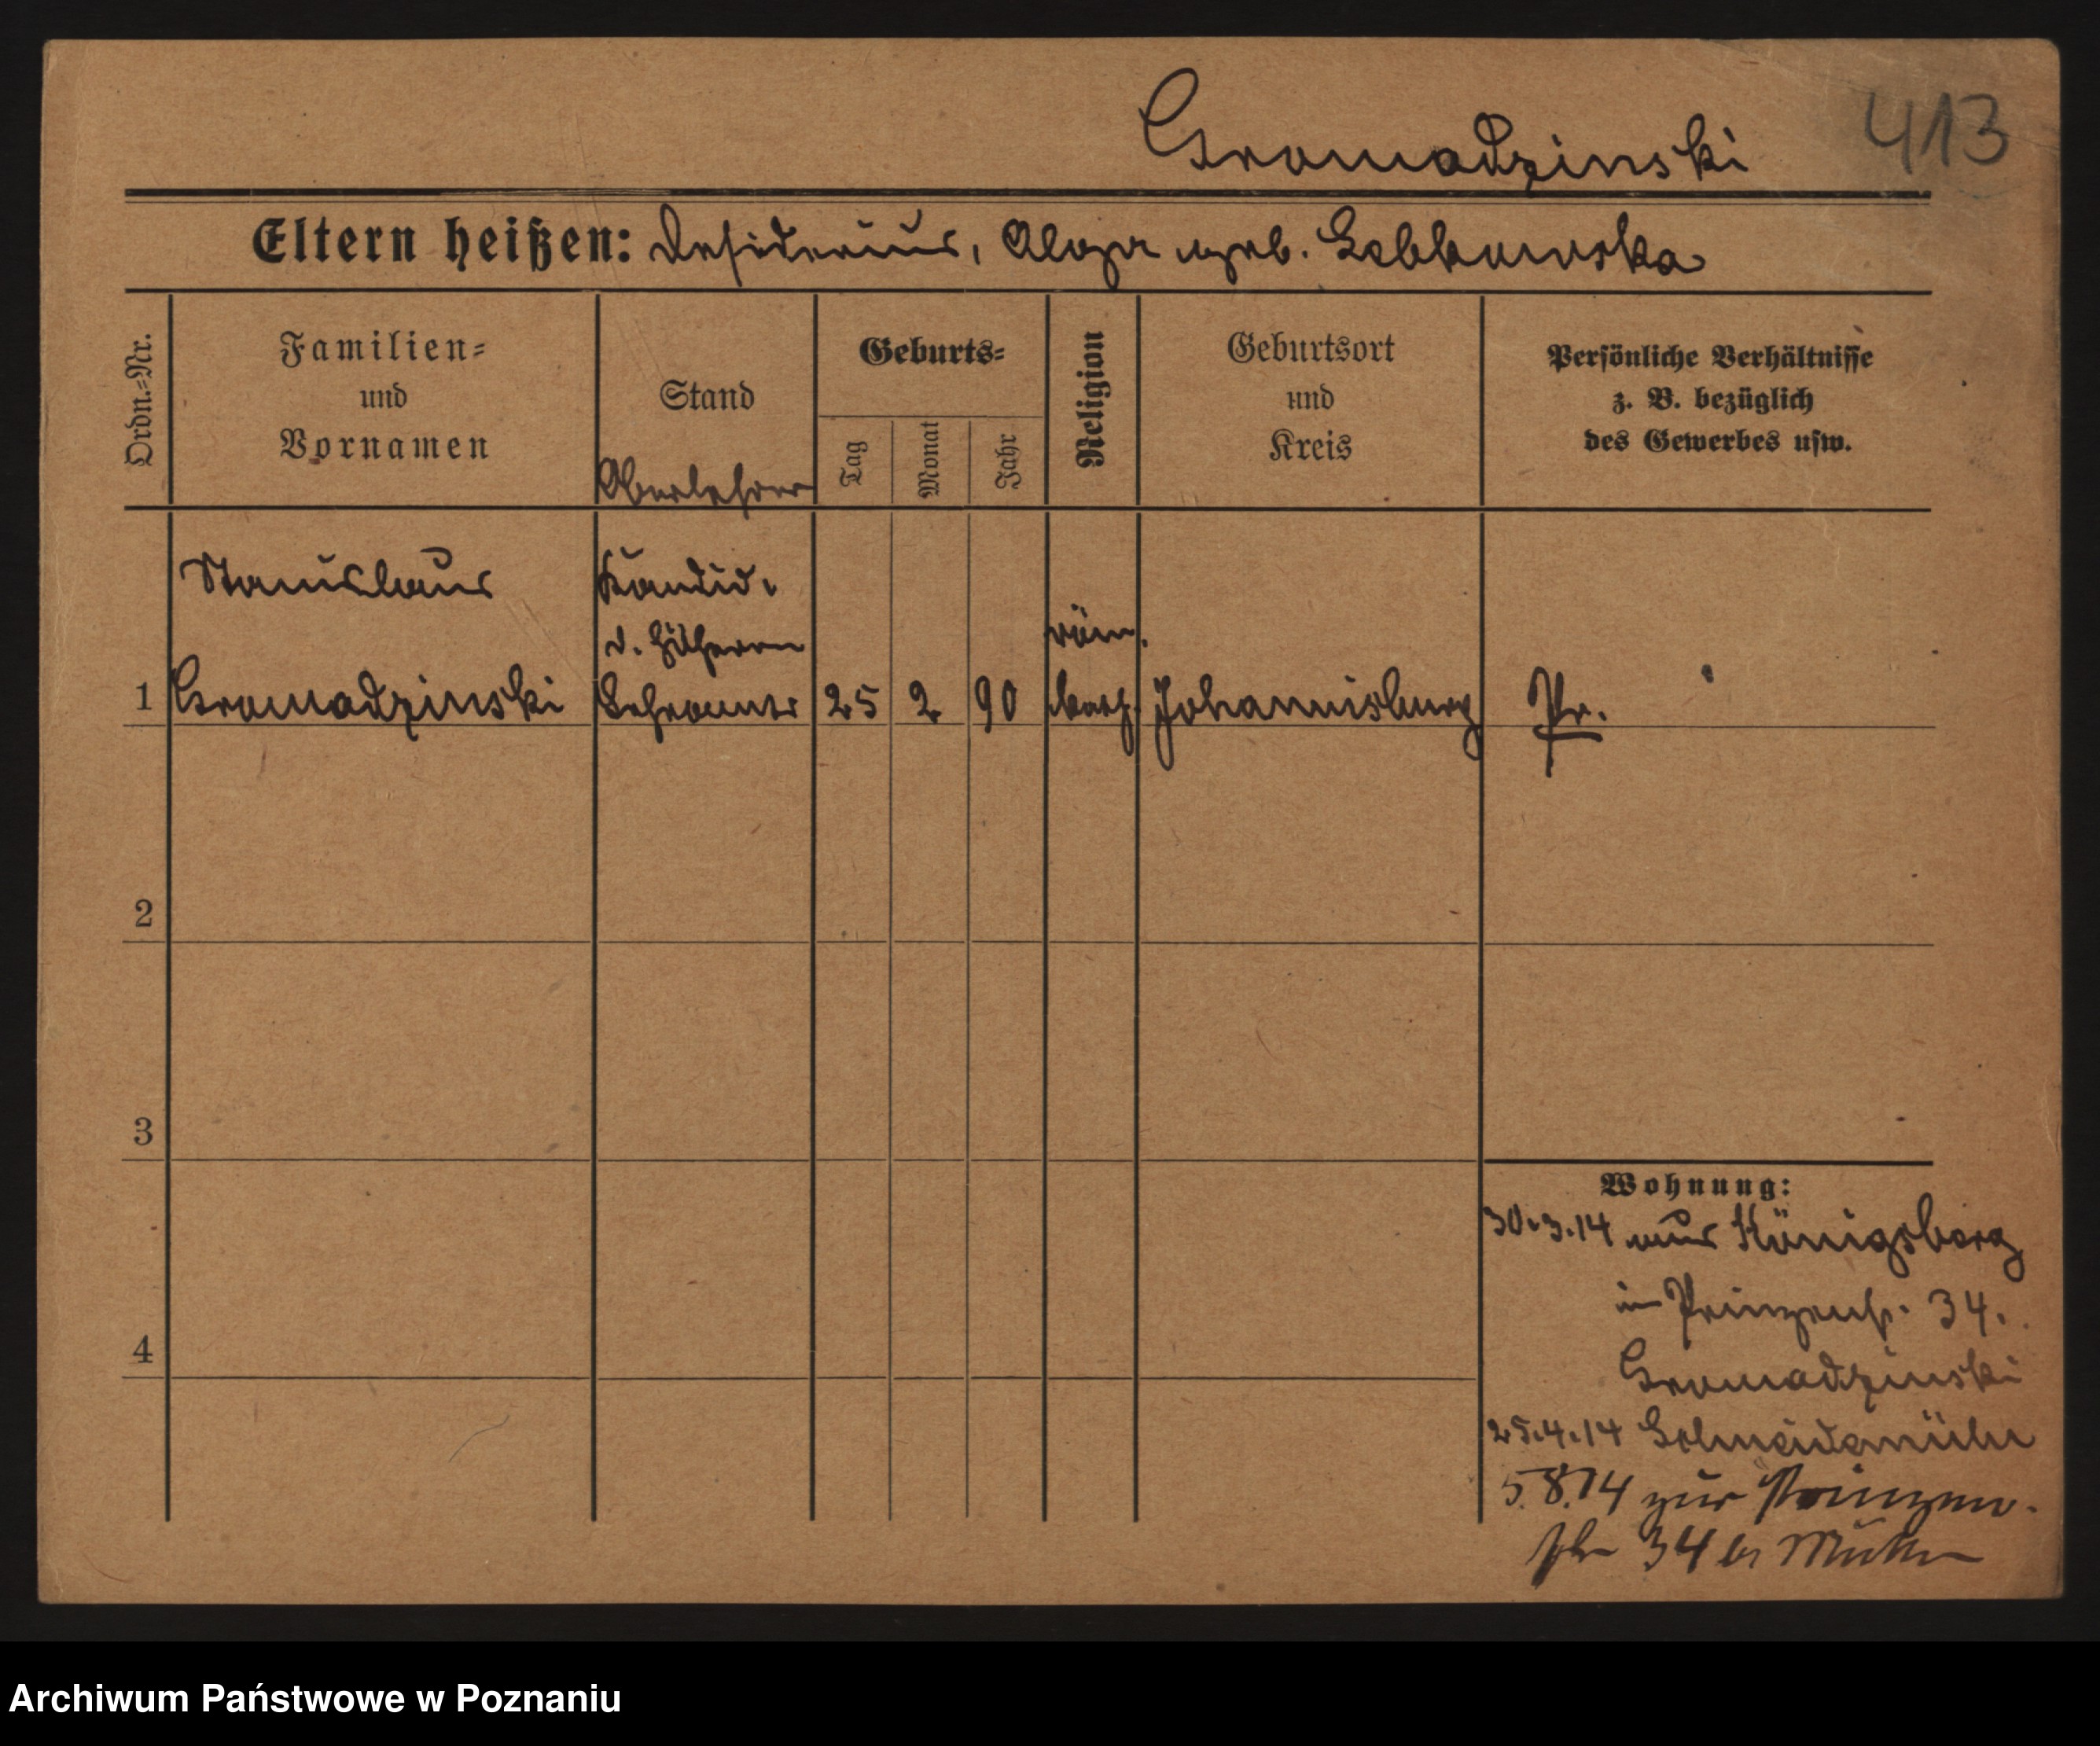 Gromadzinski
413
Eltern heißen: Desiderius, geb.
Ordn.=Nr.
Familien=
und
Vornamen
Stand
Geburts=
Tag
Monat
Jahr
Religion
Geburtsort
und
Kreis
Persönliche Verhältnisse
z. B. bezüglich
des Gewerbes usw.
Oberlehrer
Stanislaus
Kandid.
d. höheren
röm.
1 Gromadzinski Lehramts 25 2 90 kath. Johannisburg Pr.
2
3
4
Wohnung:
30.3.14 aus Königsberg
in Prinzenstr. 34.
Gromadzinski
25.4.14 Schneidemühl
5.8.14 zur Prinzen-
str 34 b/
Archiwum Państwowe w Poznaniu